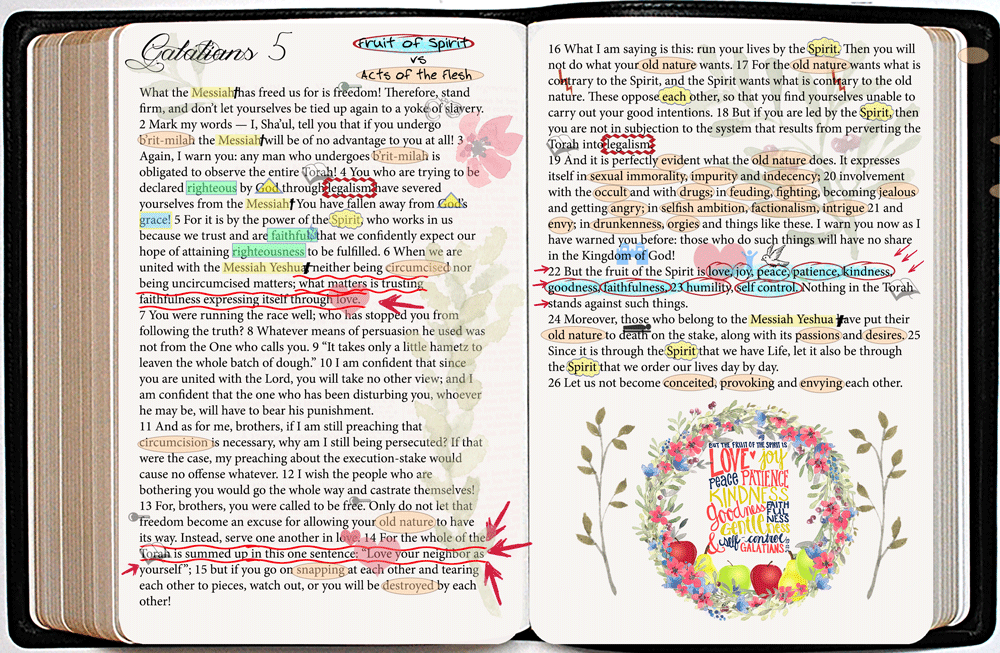 Galatians 5
Fruit of Spirit
vs
Acts of the Flesh
What the Messiah has freed us for is freedom! Therefore, stand
firm, and don't let yourselves be tied up again to a yoke of slavery.
2 Mark my words — I, Sha'ul, tell you that if you undergo
b'rit-milah the Messiah will be of no advantage to you at all! 3
Again, I warn you: any man who undergoes b'rit-milah is
obligated to observe the entire Torah! 4 You who are trying to be
declared righteous by God through legalism have severed
yourselves from the Messiah! You have fallen away from God's
grace! 5 For it is by the power of the Spirit, who works in us
because we trust and are faithful, that we confidently expect our
hope of attaining righteousness to be fulfilled. 6 When we are
united with the Messiah Yeshua, neither being circumcised nor
being uncircumcised matters; what matters is trusting
faithfulness expressing itself through love.
7 You were running the race well; who has stopped you from
following the truth? 8 Whatever means of persuasion he used was
not from the One who calls you. 9 "It takes only a little hametz to
leaven the whole batch of dough." 10 I am confident that since
you are united with the Lord, you will take no other view; and I
am confident that the one who has been disturbing you, whoever
he may be, will have to bear his punishment.
11 And as for me, brothers, if I am still preaching that
circumcision is necessary, why am I still being persecuted? If that
were the case, my preaching about the execution-stake would
cause no offense whatever. 12 I wish the people who are
bothering you would go the whole way and castrate themselves!
13 For, brothers, you were called to be free. Only do not let that
freedom become an excuse for allowing your old nature to have
its way. Instead, serve one another in love. 14 For the whole of the
Torah is summed up in this one sentence: "Love your neighbor as
yourself"; 15 but if you go on snapping at each other and tearing
each other to pieces, watch out, or you will be destroyed by each
other!
16 What I am saying is this: run your lives by the Spirit. Then you will
not do what your old nature wants. 17 For the old nature wants what is
contrary to the Spirit, and the Spirit wants what is contrary to the old
nature. These oppose each other, so that you find yourselves unable to
carry out your good intentions. 18 But if you are led by the Spirit, then
you are not in subjection to the system that results from perverting the
Torah into legalism.
19 And it is perfectly evident what the old nature does. It expresses
itself in sexual immorality, impurity and indecency; 20 involvement
with the occult and with drugs; in feuding, fighting, becoming jealous
and getting angry; in selfish ambition, factionalism, intrigue 21 and
envy; in drunkenness, orgies and things like these. I warn you now as I
have warned you before: those who do such things will have no share
in the Kingdom of God!
22 But the fruit of the Spirit is love, joy, peace, patience, kindness,
goodness, faithfulness, 23 humility, self control. Nothing in the Torah
stands against such things.
24 Moreover, those who belong to the Messiah Yeshua have put their
old nature to death on the stake, along with its passions and desires. 25
Since it is through the Spirit that we have Life, let it also be through
the Spirit that we order our lives day by day.
26 Let us not become conceited, provoking and envying each other.
BUT THE FRUIT OF THE SPIRIT IS
LOVE joy
Peace PATIENCE
KINDNESS
Goodness FAITH
FUL
NESS
Gentleness
& self-control
GALATIANS